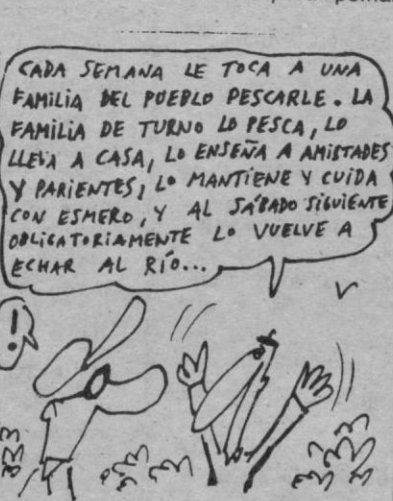 CADA SEMANA LE TOCA A UNA
FAMILIA DEL PUEBLO PESCARLE. LA
FAMILIA DE TURNO LO PESCA, LO
LLEVA A CASA, LO ENSEÑA A AMISTADES
Y PARIENTES, LO MANTIENE Y CUIDA
CON ESMERO, Y AL SÁBADO SIGUIENTE
OBLIGATORIAMENTE LO VUELVE A
ECHAR AL RÍO...
!